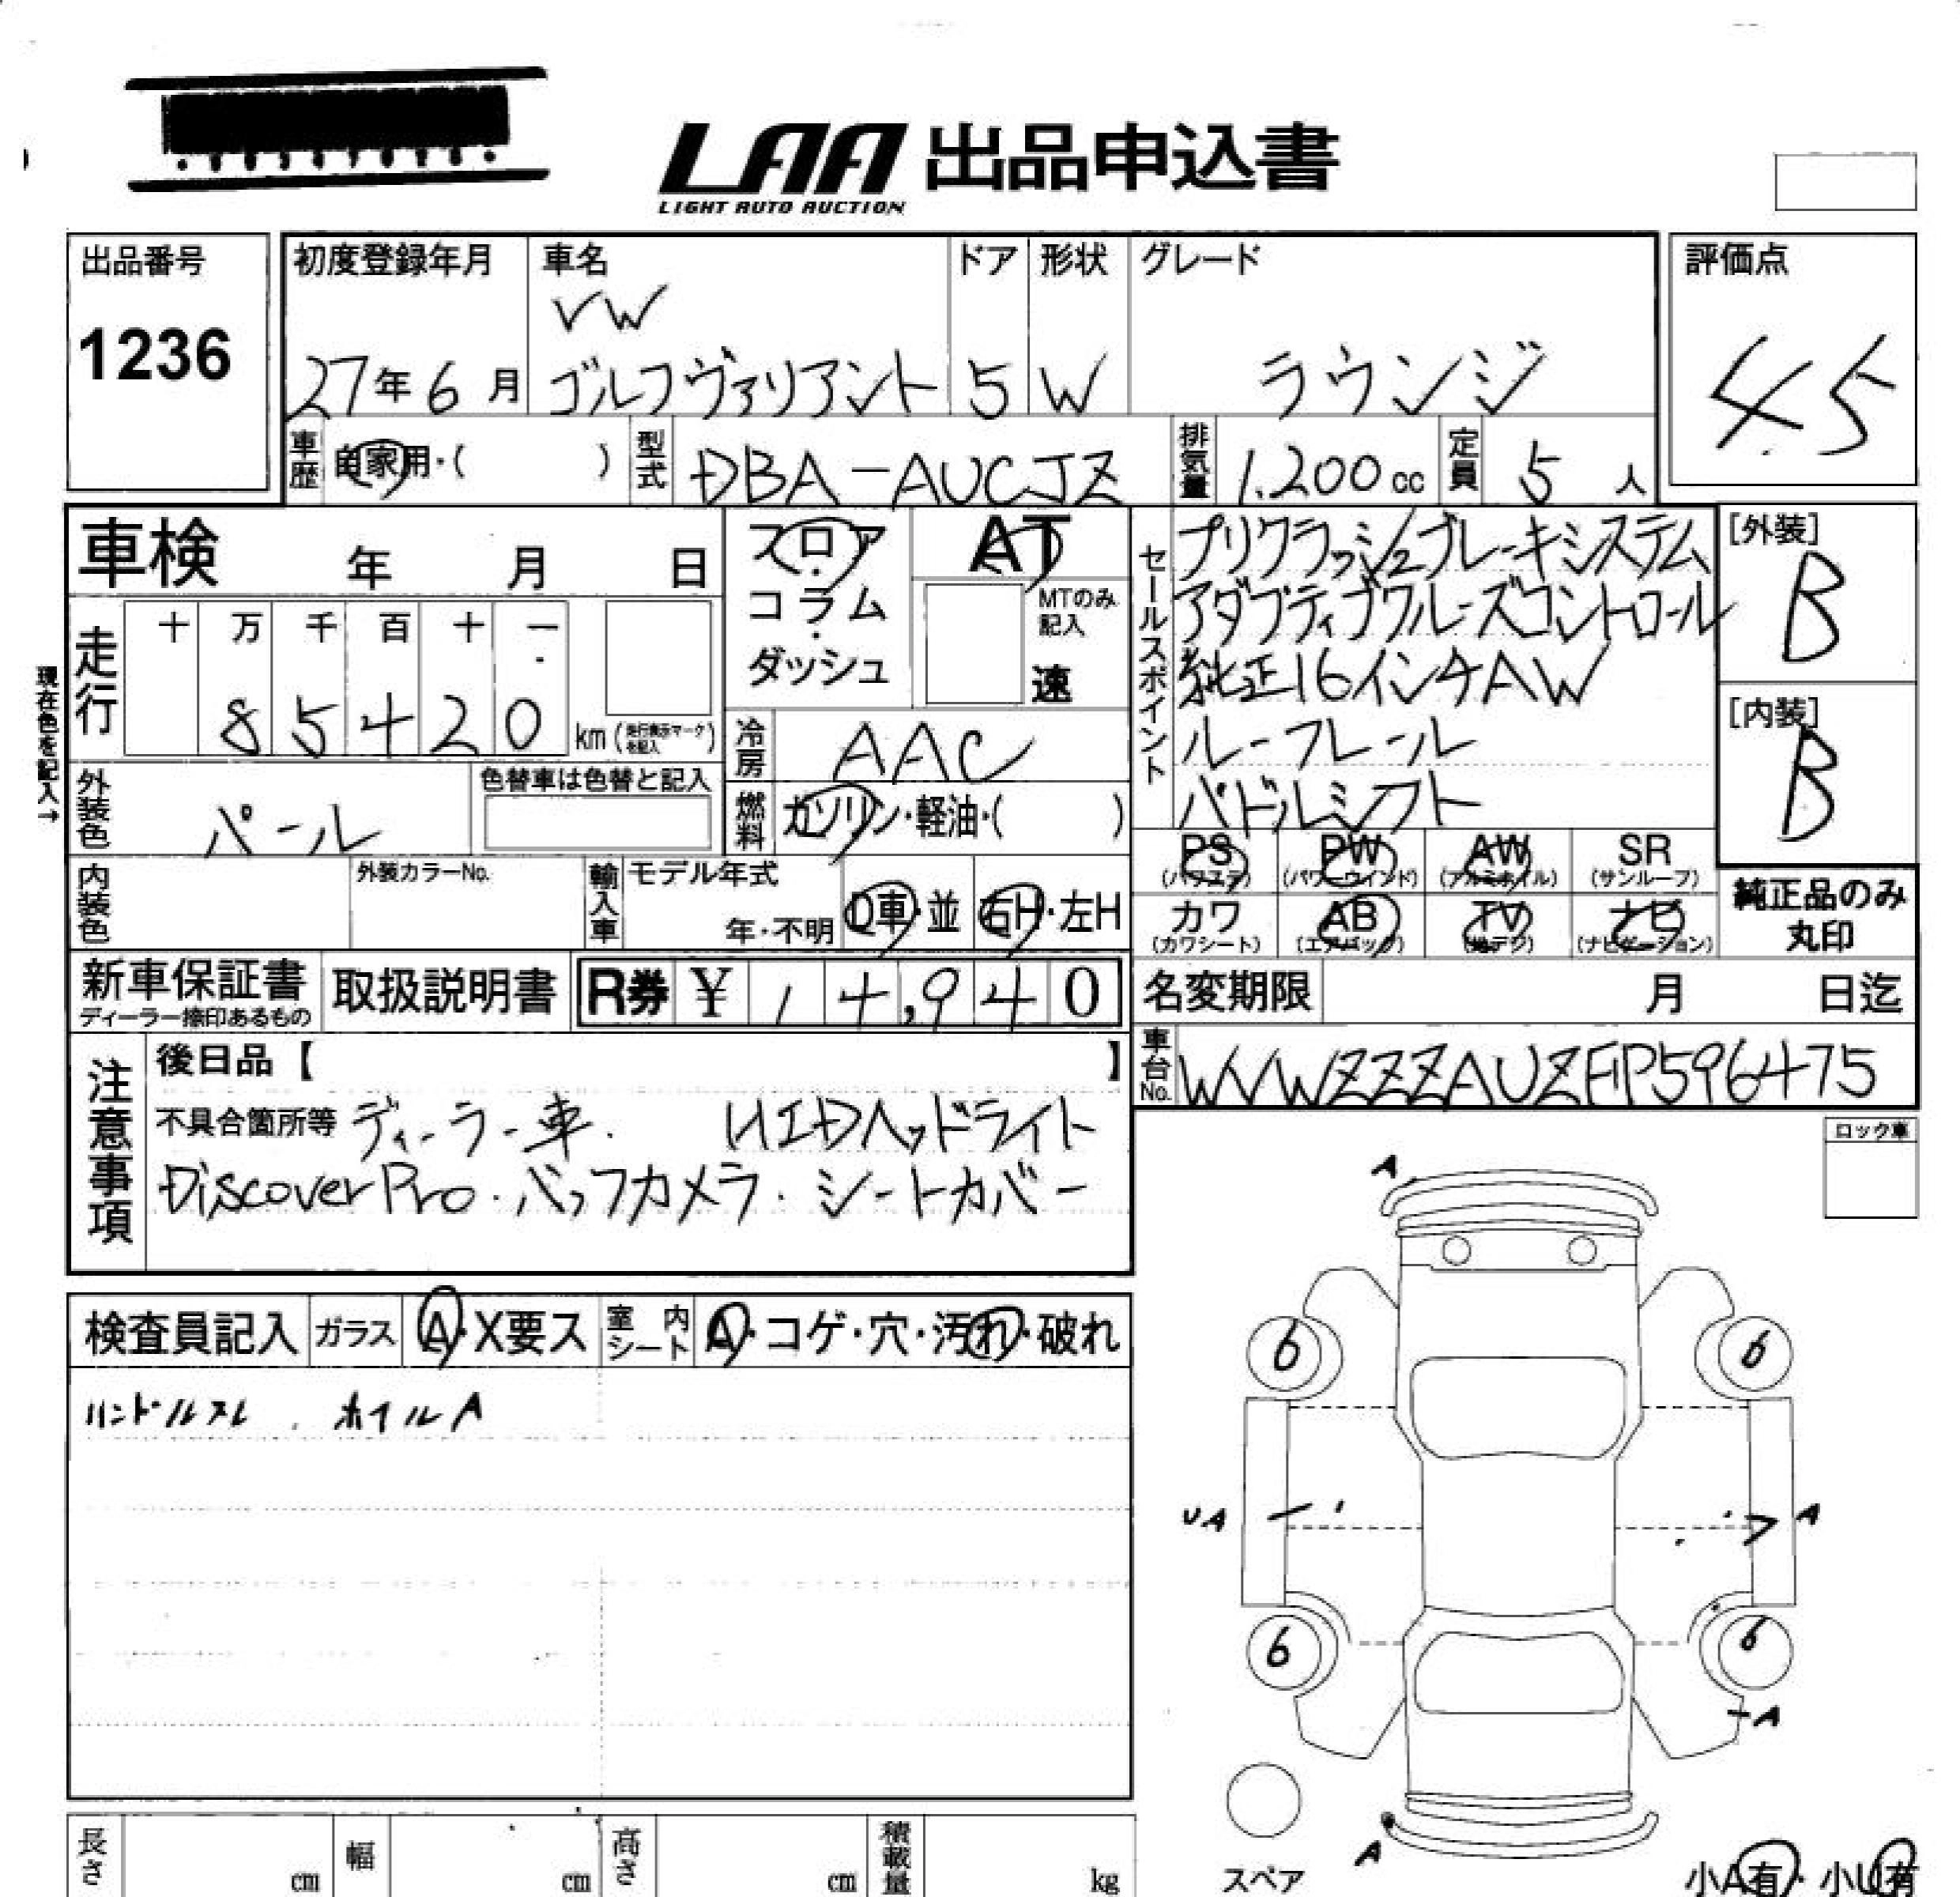 LAA 出品申込書
LIGHT AUTO AUCTION
出品番号
1236
初度登録年月
27年6月
車名
VW
ゴルフヴァリアント
ドア
5
形状
W
グレード
ラウンジ
評価点
4.5
車歴
自家用・( )
型式
DBA-AUCJZ
排気量
1.200cc
定員
5人
車検 年 月 日
フロア・コラム・ダッシュ
AT
MTのみ記入
速
セールスポイント
プリクラッシュブレーキシステム
アダプティブクルーズコントロール
純正16インチAW
ルーフレール
パドルシフト
[外装]
B
[内装]
B
現在色を記入→
走行
十 万 千 百 十 一
8 5 4 2 0 km(走行表示マークを記入)
冷房
AAC
外装色
パール
色替車は色替と記入
燃料
ガソリン・軽油・( )
PS (パワステ)
PW (パワーウィンド)
AW (アルミホイル)
SR (サンルーフ)
カワ (カワシート)
AB (エアバック)
TV (地デジ)
ナビ (ナビゲーション)
純正品のみ丸印
内装色
外装カラーNo.
輸入車
モデル年式
年・不明
D車・並
右H・左H
新車保証書
ディーラー捺印あるもの
取扱説明書
R券 ¥ 14,940
名変期限 月 日迄
車台No.
WVWZZZAUZFP596475
注意事項
後日品【 】
不具合箇所等 ディーラー車. HIDヘッドライト
Discover Pro・バックカメラ・シートカバー
ロック車
検査員記入
ガラス A・X要ス
室内シート A・コゲ・穴・汚れ・破れ
ハンドルスレ . ホイルA
A
6 6
UA A
6 6
A
A
スペア
小A有・小U有
長さ cm
幅 cm
高さ cm
積載量 kg